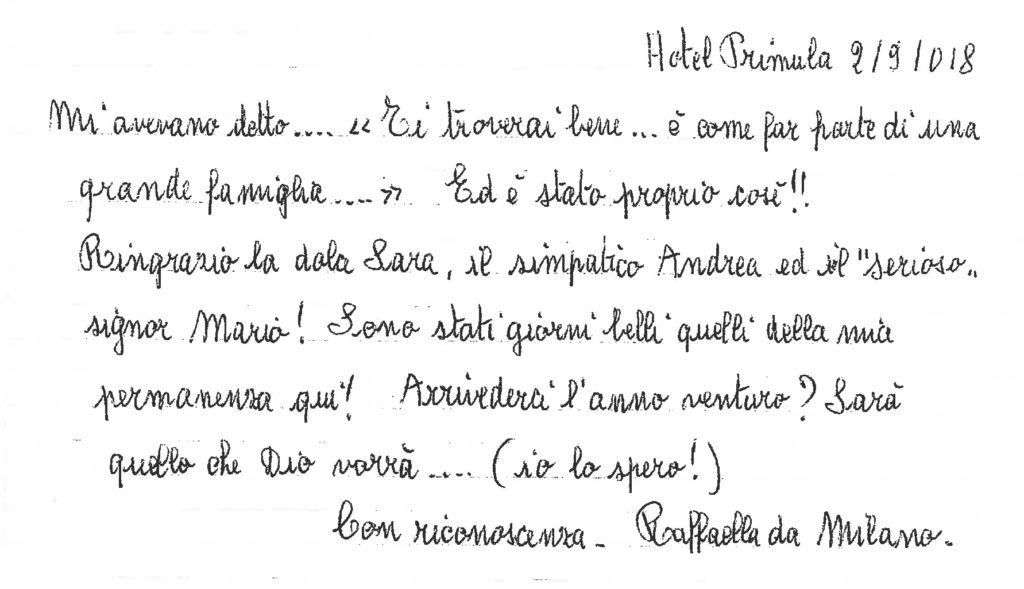 Hotel Primula 2/9/018
Mi avevano detto.... «Ti troverai bene... è come far parte di una
grande famiglia....» Ed è stato proprio così!!
Ringrazio la dolce Sara, il simpatico Andrea ed il "serioso"
signor Mario! Sono stati giorni belli quelli della mia
permanenza qui! Arrivederci l'anno venturo? Sarà
quello che Dio vorrà.... (io lo spero!)
Con riconoscenza - Raffaella da Milano.